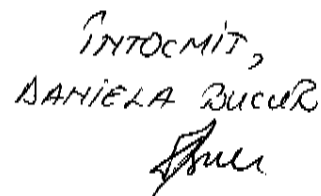 ÎNTOCMIT,
DANIELA BUCUR